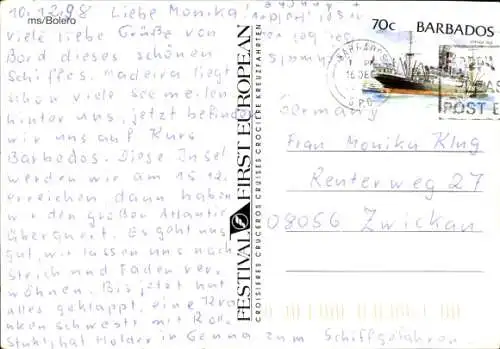 10.12.98 Liebe Monika,
ms/Bolero
viele liebe Grüße von
Bord dieses schönen
Schiffes. Madeira liegt
schon viele Seemeilen
hinter uns, jetzt befinden
wir uns auf Kurs
Barbados. Diese Insel
werden wir am 15.12.
erreichen, dann haben
wir den großen Atlantic
überquert. Es geht uns
gut, wir lassen uns nach
Strich und Faden ver
wöhnen. Bis jetzt hat
alles geklappt, eine Kra
nkenschwester mit Roll
stuhl hat Holder in Genua zum Schiff gefahren.
FESTIVAL FIRST EUROPEAN
CROISIERES CRUCEROS CRUISES CROCIERE KREUZFAHRTEN
70c BARBADOS
BARBADOS
G.P.O.
POST E
Germany
Frau Monika Klug
Renterweg 27
08056 Zwickau